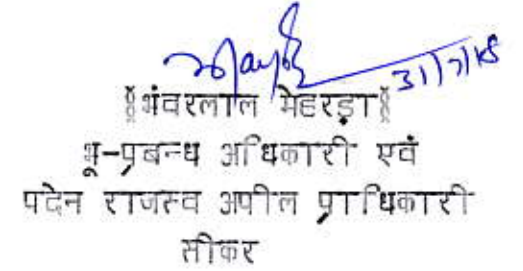 31/7/15
§भंवरलाल मेहरड़ा§
भू-प्रबन्ध अधिकारी एवं
पदेन राजस्व अपील प्राधिकारी
सीकर